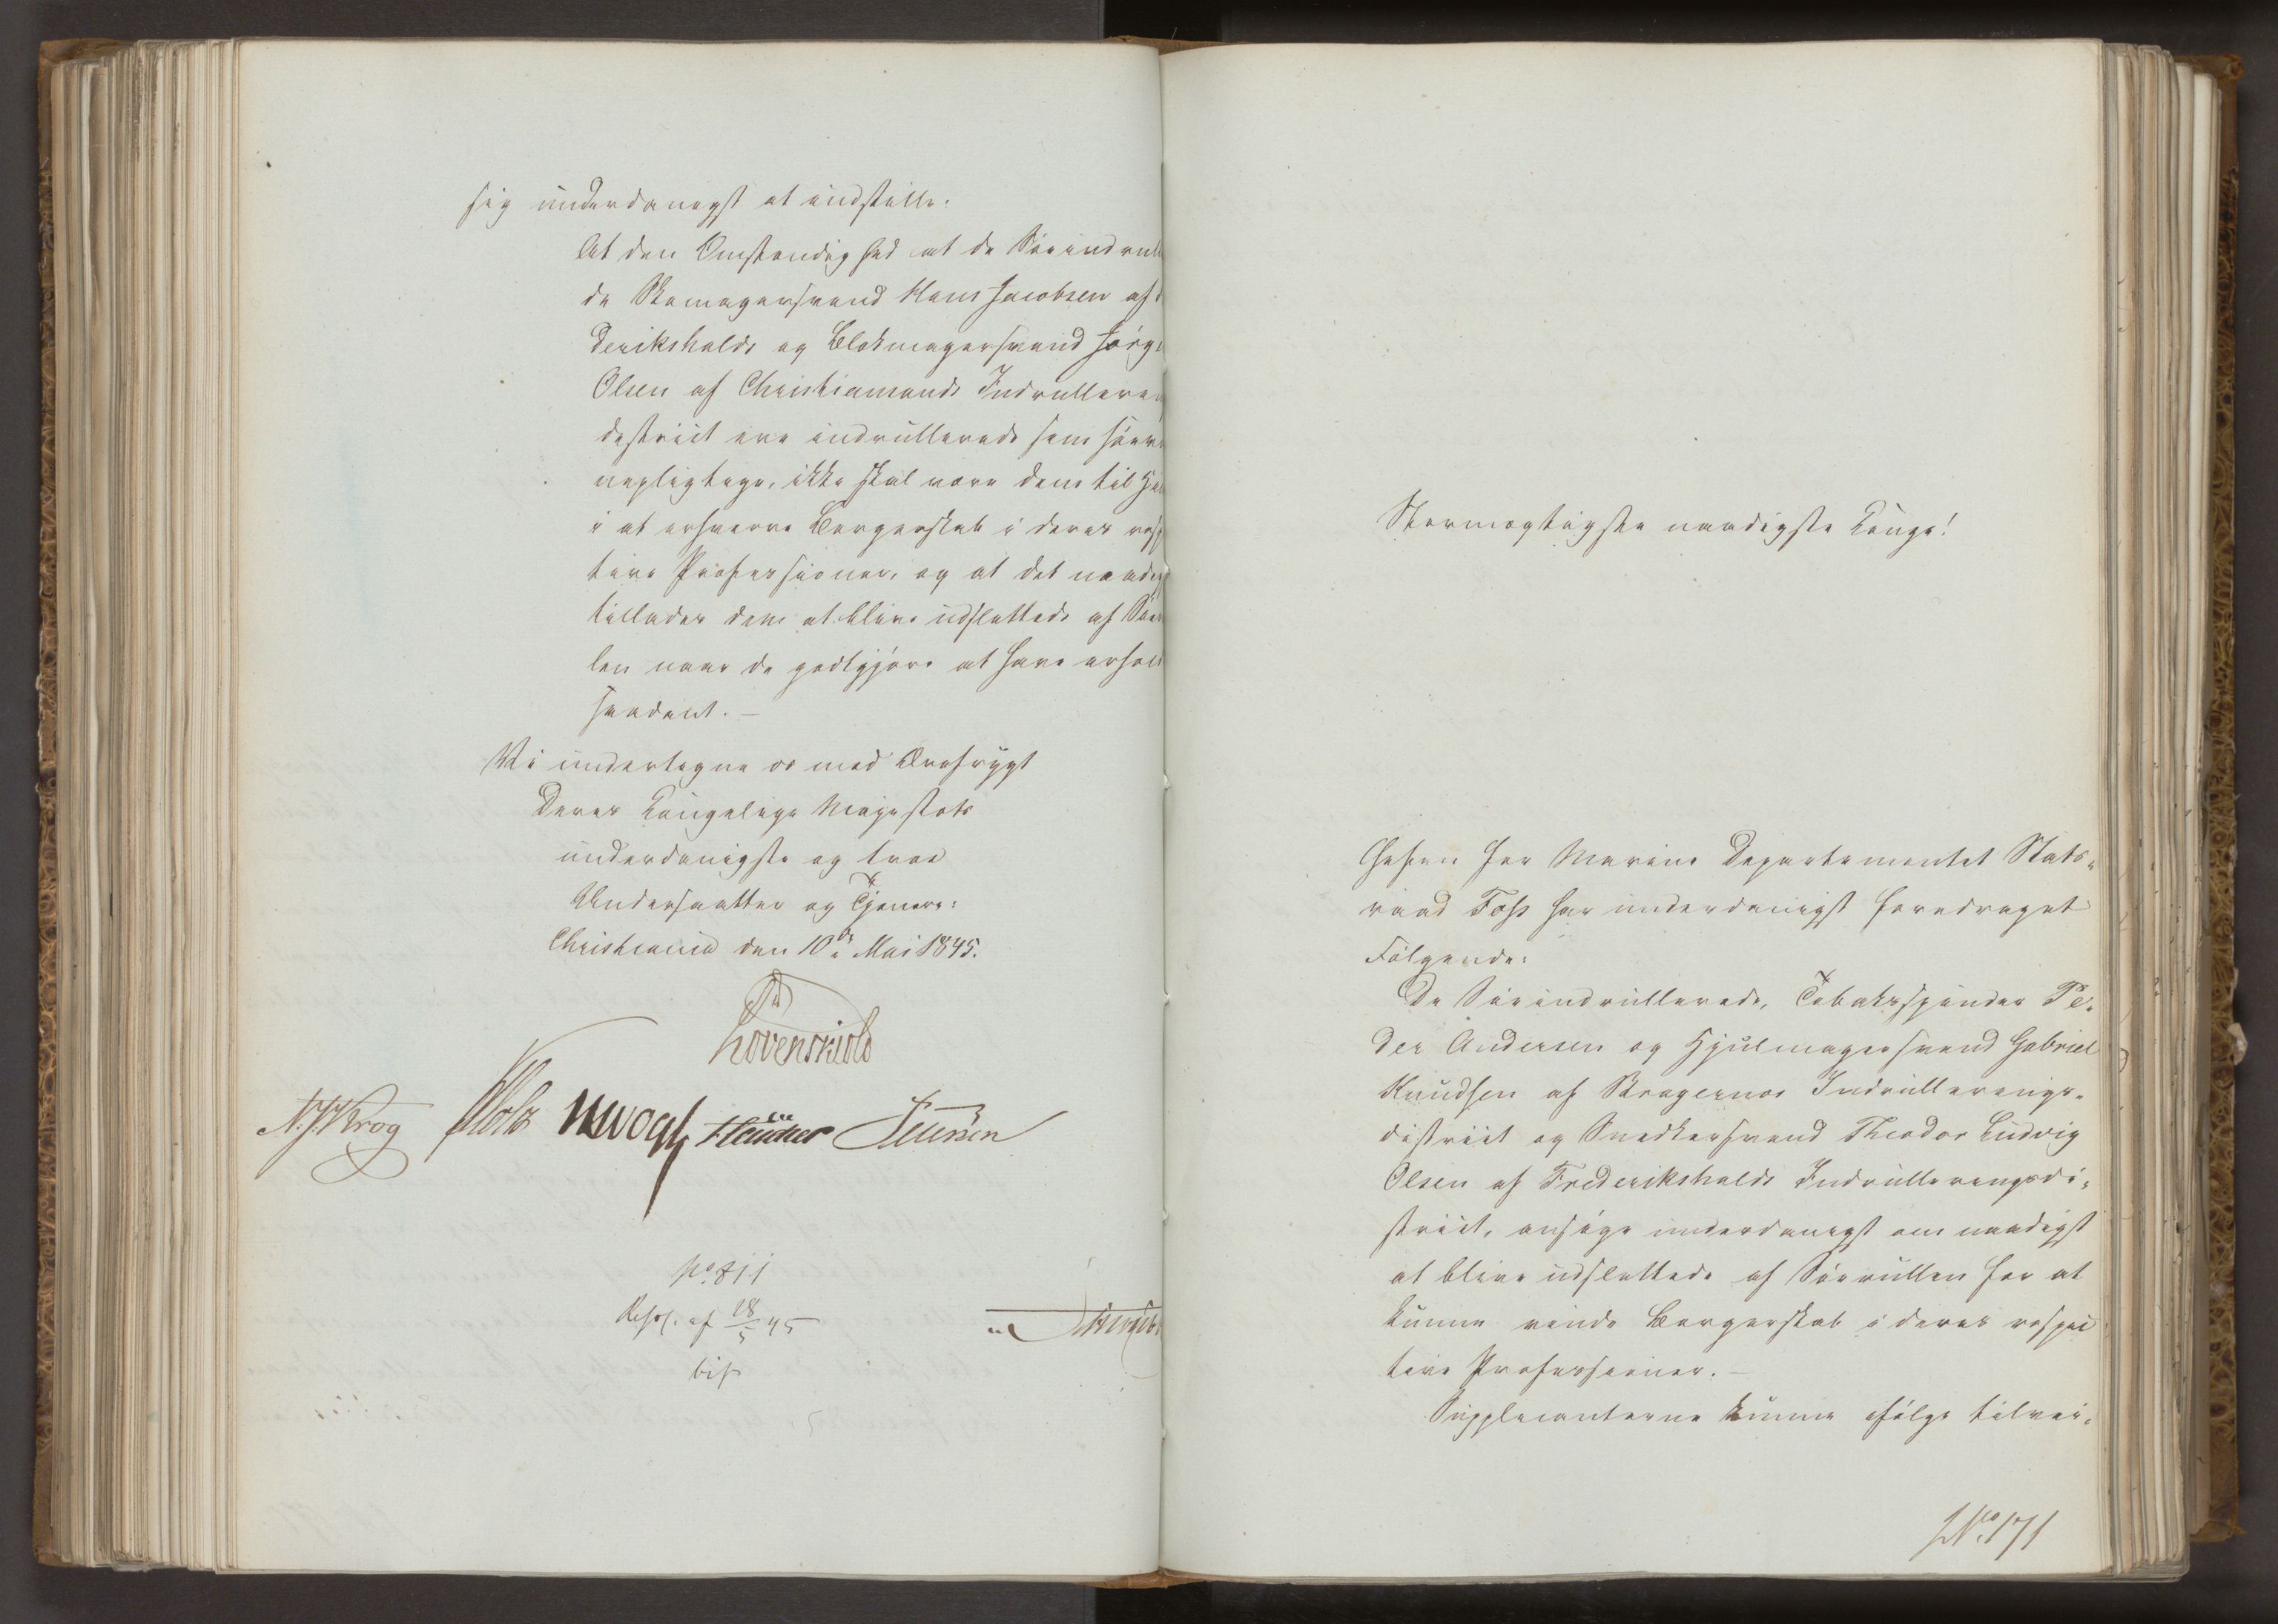 sig underdanigst at indstille:
At den Omstændighed at de Søeindrull
de Skomagersvend Hans Jacobsen af
deriksha­lds og Blokmagersvend Jörge
Olsen af Christiansands Indrullerin
distrikt ere indrullerede som søevær
nepligtige, ikke skal være dem til Hin
i at erhverve Borgerskab i deres resp
tive Professioner, og at det naadig
tillades dem at blive udslettede af Søer
len naar de godtgjøre at have erhold
saadant. —
Vi undertegne os med Ærefrygt
Deres Kongelige Majestæts
underdanigste og troe
Undersaatter og Tjenere:
Christiania den 10de Mai 1845.
Løvenskiold
N.J. Krog Holst JHVogt
No 811
Resol. af 28/5 45
bif
Stormægtigste naadigste Konge!
Chefen for Marine Departementet Stats-
raad Foss har underdanigst foredraget
Følgende:
De Søeindrullerede, Tobaksspinder Pe-
der Andersen og Hjulmagersvend Gabriel
Knudsen af Bragernæs Indrullerings-
distriict og Snedkersvend Theodor Ludvig
Olsen af Frederikshalds Indrulleringsdi-
striict, ansøge underdanigst om naadigst
at blive udslettede af Søerullen for at
kunne vinde Borgerskab i deres respec
tive Professioner. —
Supplicanterne kunne ifølge tilvei-
No 171